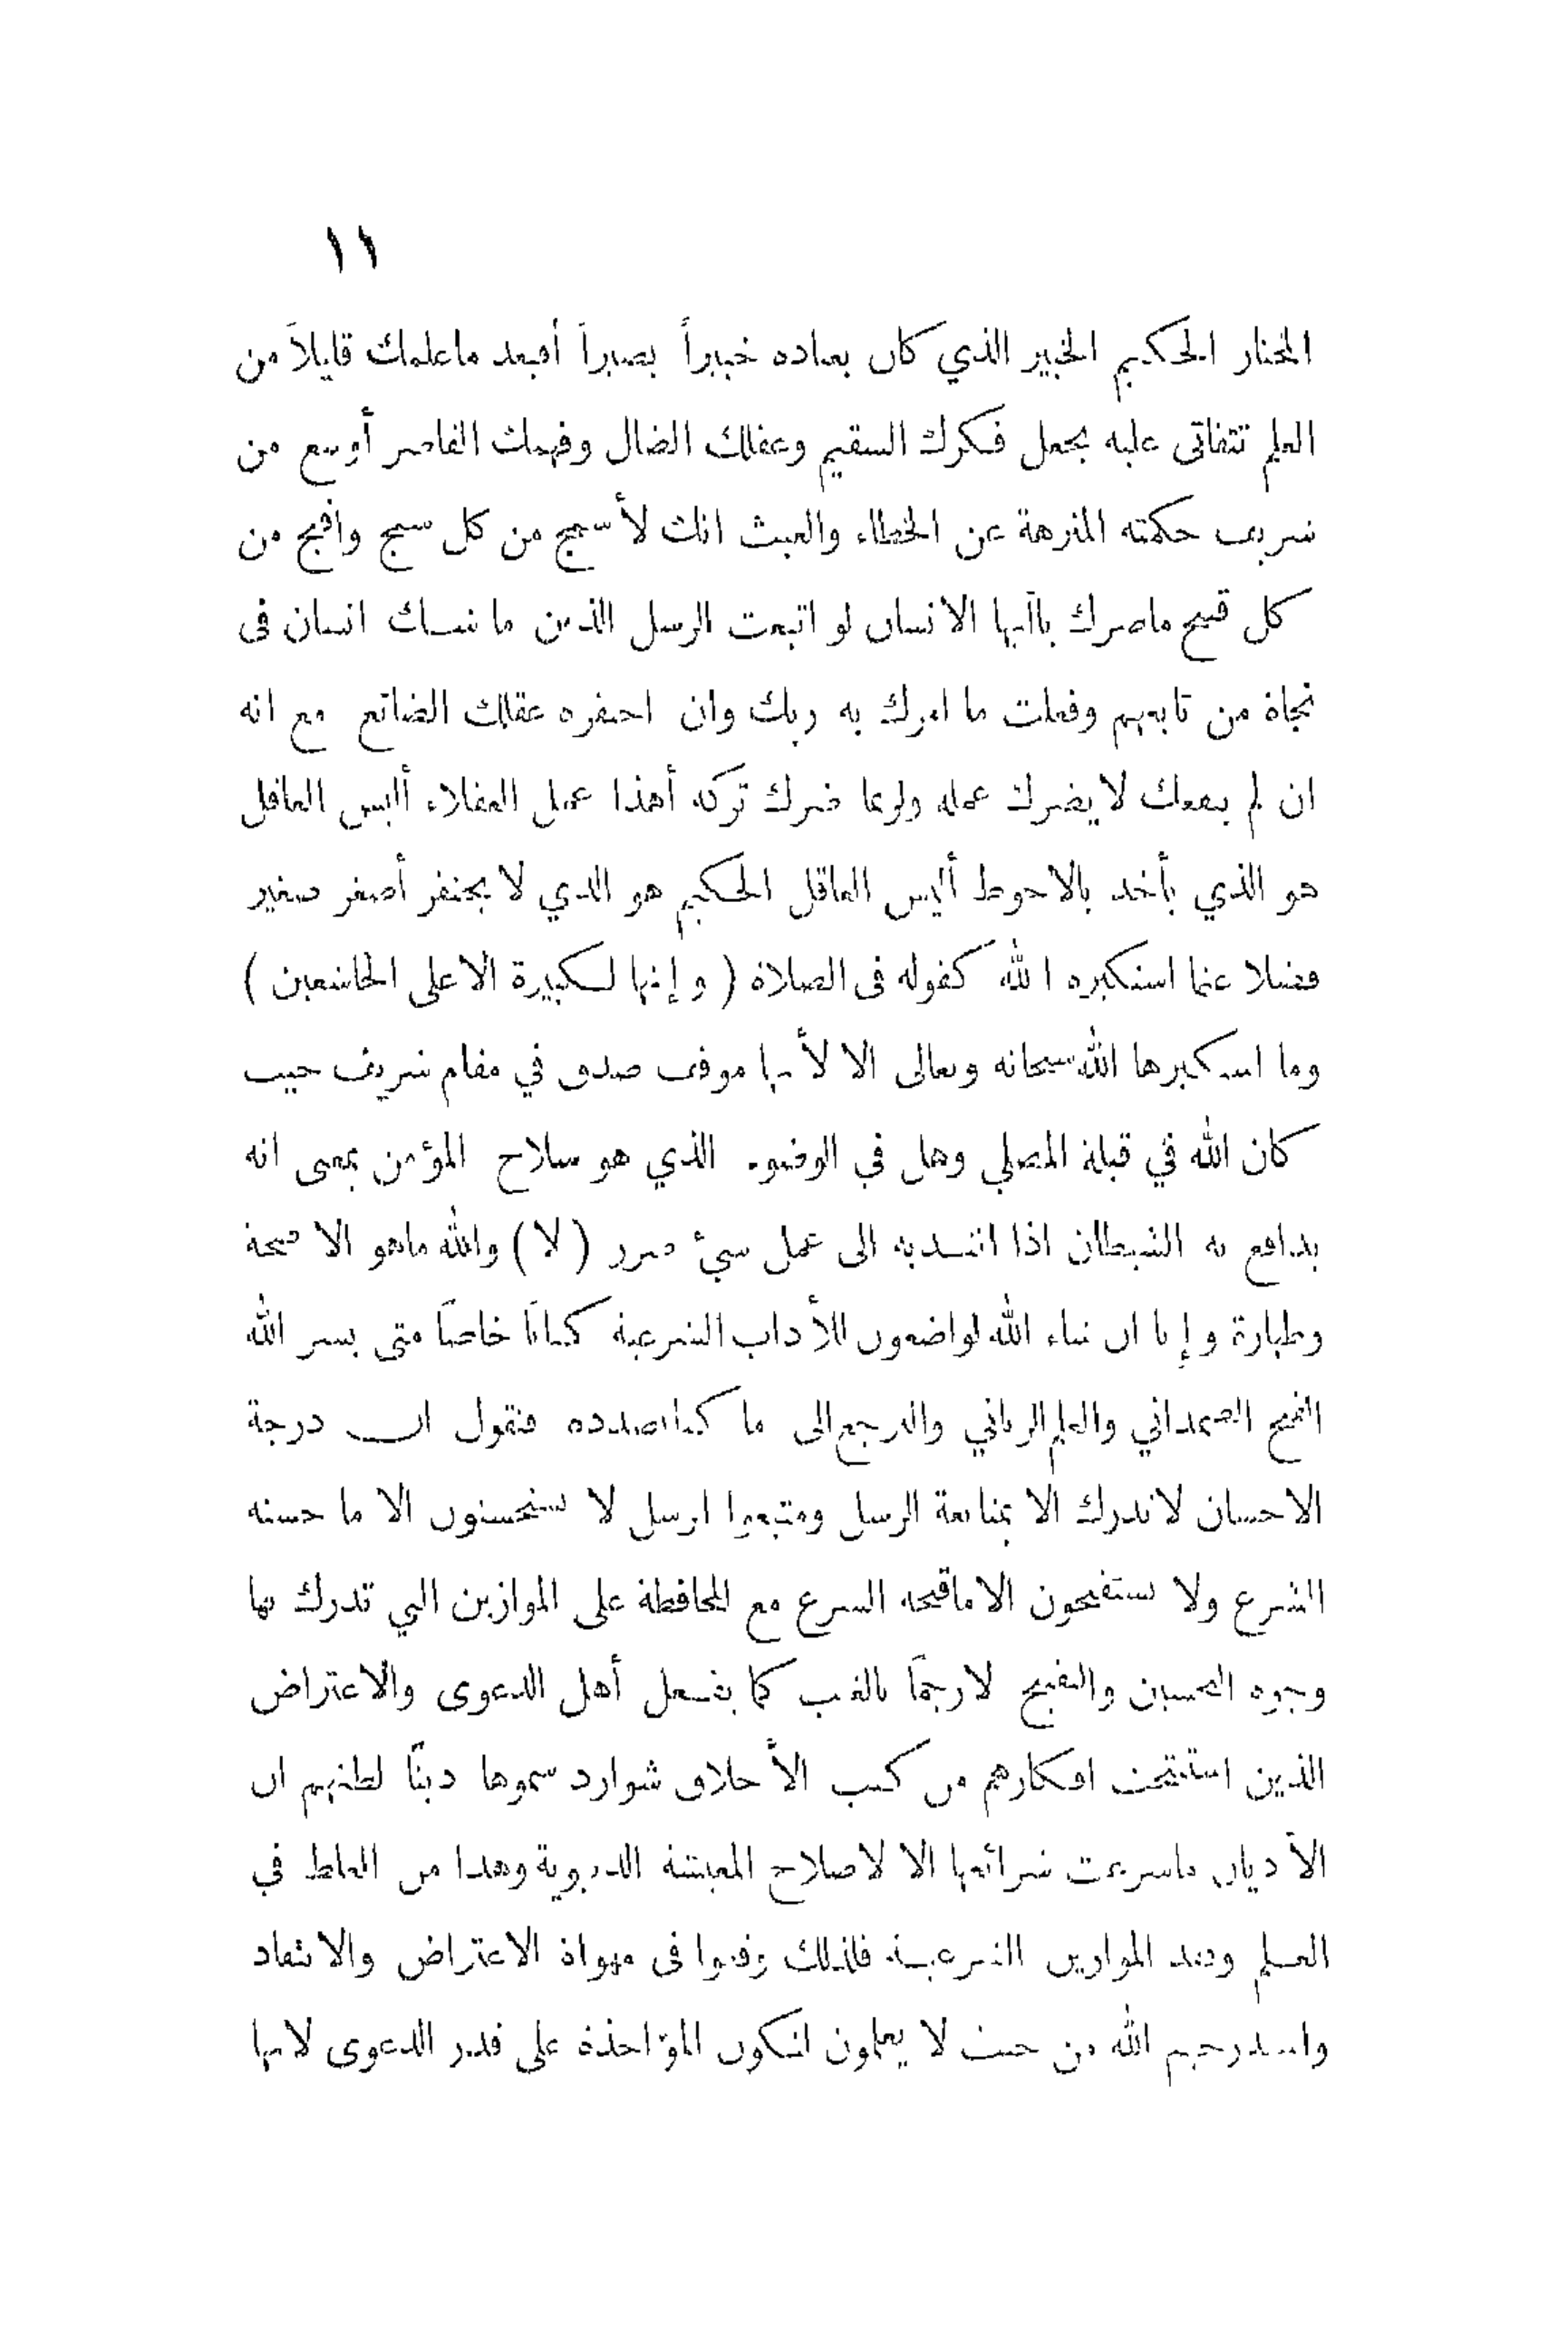 ١١
المختار الحكيم الخبير الذي كان بعباده خبيراً بصيراً أفبعد ماعلمك قليلاً من
العلم تتفاتى عليه بجعل فكرك السقيم وعقلك الضال وفهمك القاصر أوسع من
شريف حكمته المنزهة عن الخطاء والعبث انك لأسمج من كل سمج واقبح من
كل قبيح ماضرك ياأيها الانسان لو اتبعت الرسل الذين ما نساك انسان فى
نجاة من تابعهم وفعلت ما امرك به ربك وان احتقره عقلك الضائع مع انه
ان لم ينفعك لا يضرك عمله ولربما ضرك تركه أهذا عمل العقلاء أليس العاقل
هو الذي يأخذ بالاحوط أليس العاقل الحكيم هو الذي لا يحتقر أصغر صغير
فضلا عما استكبره الله كقوله فى الصلاة ( وإنها لكبيرة الا على الخاشعين )
وما استكبرها الله سبحانه وتعالى الا لأنها موقف صدق في مقام شريف حيث
كان الله في قبلة المصلي وهل في الوضوء الذي هو سلاح المؤمن بمعنى انه
يدافع به الشيطان اذا انتدبه الى عمل سيئ ضرر ( لا ) والله ماهو الا صحة
وطهارة وإنا ان شاء الله لواضعون للأداب الشرعية كتابًا خاصًا متى يسر الله
الفتح الصمداني والعلم الرباني ولنرجع الى ما كنا بصدده فنقول ان درجة
الاحسان لا تدرك الا بمتابعة الرسل ومتبعوا الرسل لا يستحسنون الا ما حسنه
الشرع ولا يستقبحون الا ماقبحه الشرع مع المحافظة على الموازين التي تدرك بها
وجوه التحسين والتقبيح لا رجمًا بالغيب كما يفعل أهل الدعوى والاعتراض
الذين استنتجت افكارهم من كتب الأخلاق شوارد سموها دينًا لظنهم ان
الأديان ماشرعت شرائعها الا لاصلاح المعيشة الدنيوية وهذا من الغلط في
العلم وفقد الموازين الشرعية فلذلك وقعوا فى مهواة الاعتراض والانتقاد
واستدرجهم الله من حيث لا يعلمون لتكون المؤاخذة على قدر الدعوى لانها